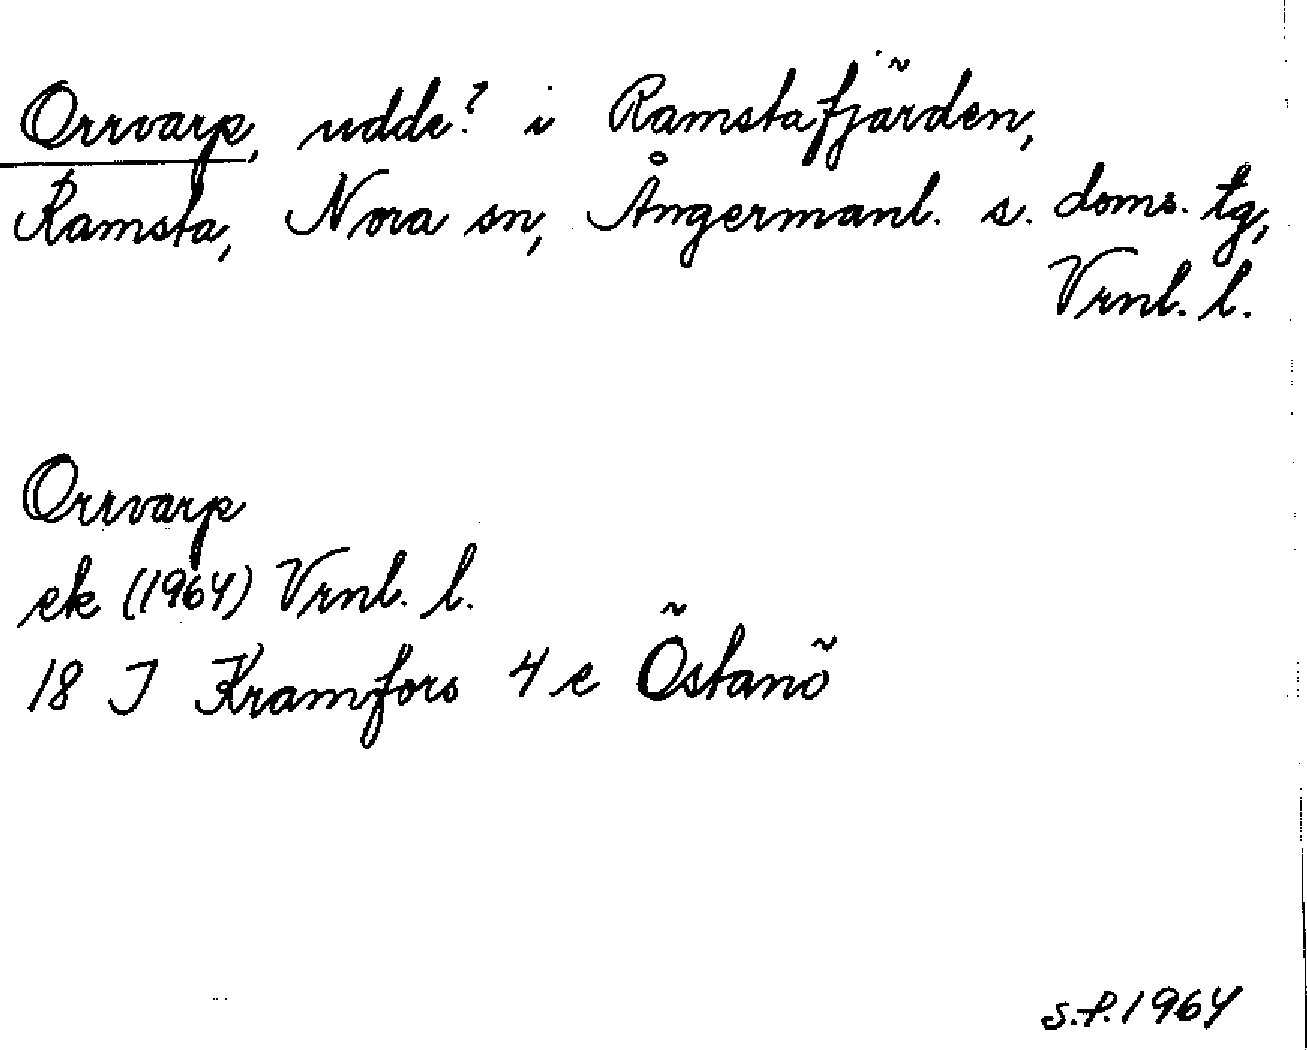 Orrvarp, udde? i Ramstafjärden,
Ramsta, Nora sn, Ångermanl. s. doms. tg,
Vrnl. l.
Orrvarp
ek (1964) Vrnl. l.
18 J Kramfors 4 c Östanö
s.f. 1964